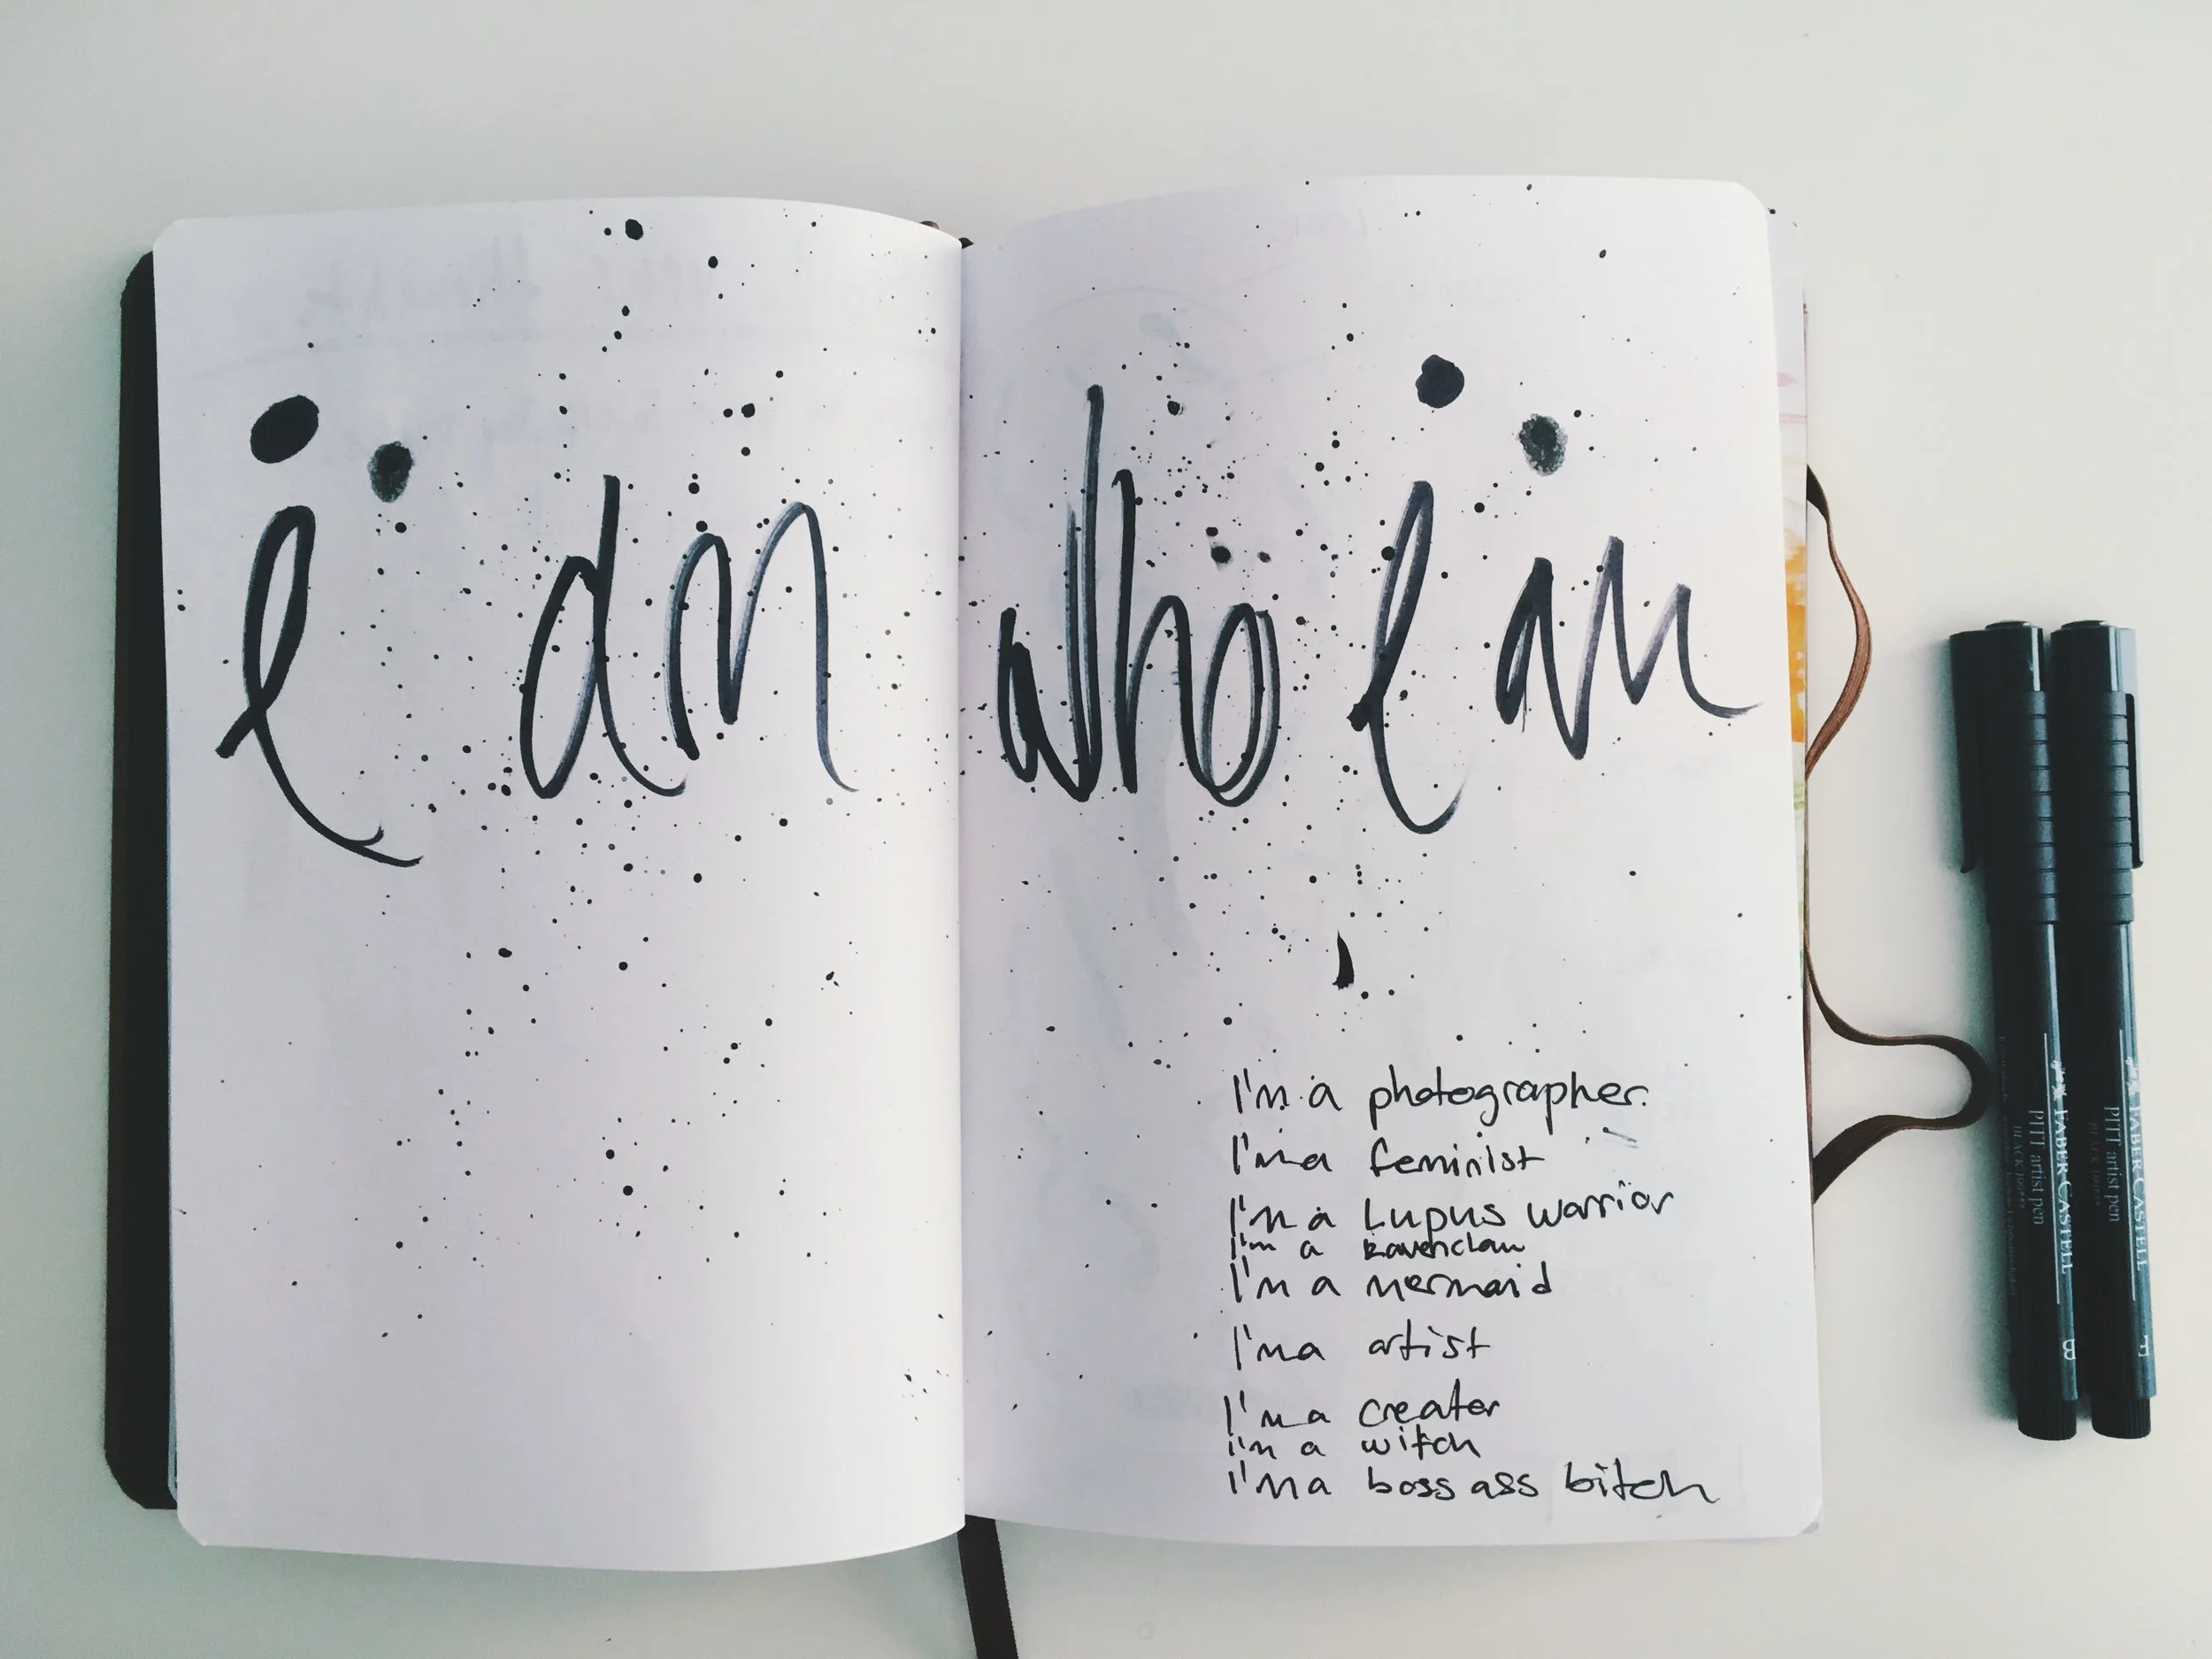 i am who i am
I'm a photographer.
I'm a feminist
I'm a Lupus warrior
I'm a Ravenclaw
I'm a mermaid
I'm a artist
I'm a creater
i'm a witch
I'm a boss ass bitch
FABER-CASTELL
PITT artist pen
B
FABER-CASTELL
PITT artist pen
F